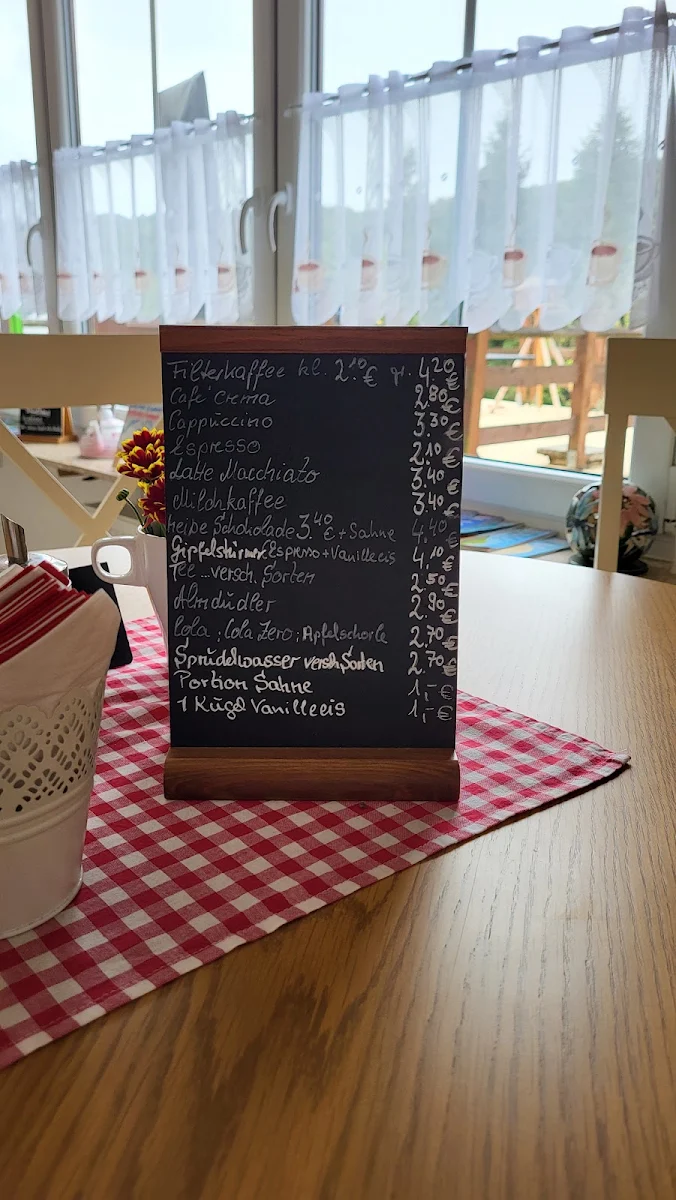 Filterkaffee kl. 2.10 € gr. 4.20 €
Café Crema 2.80 €
Cappuccino 3.30 €
Espresso 2.10 €
Latte Macchiato 3.40 €
Milchkaffee 3.40 €
heiße Schokolade 3.40 € + Sahne 4.40
Gipfelstürmer Espresso + Vanilleeis 4.10 €
Tee ... versch. Sorten 2.50 €
Almdudler 2.90 €
Cola ; Cola Zero ; Apfelschorle 2.70 €
Sprudelwasser versch. Sorten 2.70 €
Portion Sahne 1,- €
1 Kugel Vanilleeis 1,- €